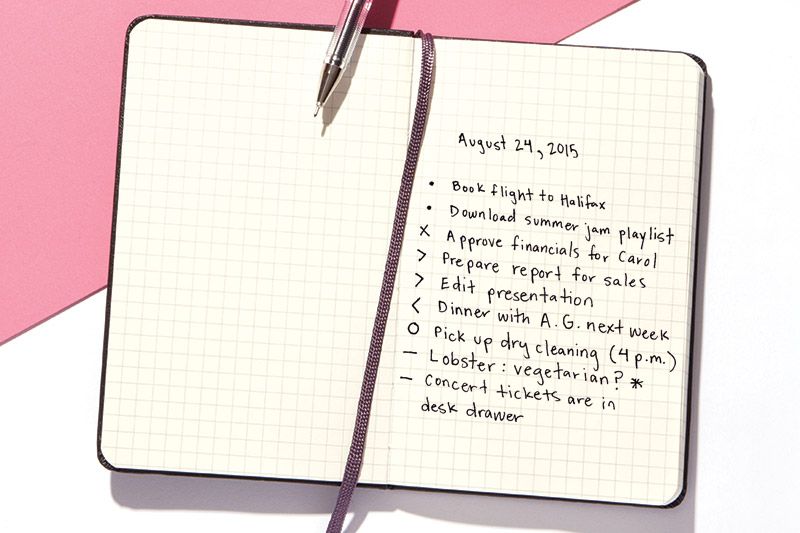 August 24, 2015
• Book flight to Halifax
• Download summer jam playlist
x Approve financials for Carol
> Prepare report for sales
> Edit presentation
< Dinner with A.G. next week
O Pick up dry cleaning (4 p.m.)
– Lobster: vegetarian? *
– Concert tickets are in
desk drawer